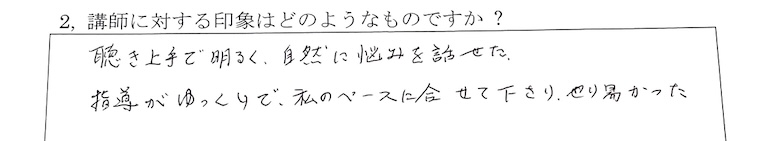 2, 講師に対する印象はどのようなものですか？
聴き上手で明るく、自然に悩みを話せた。
指導がゆっくりで、私のペースに合せて下さり、やり易かった